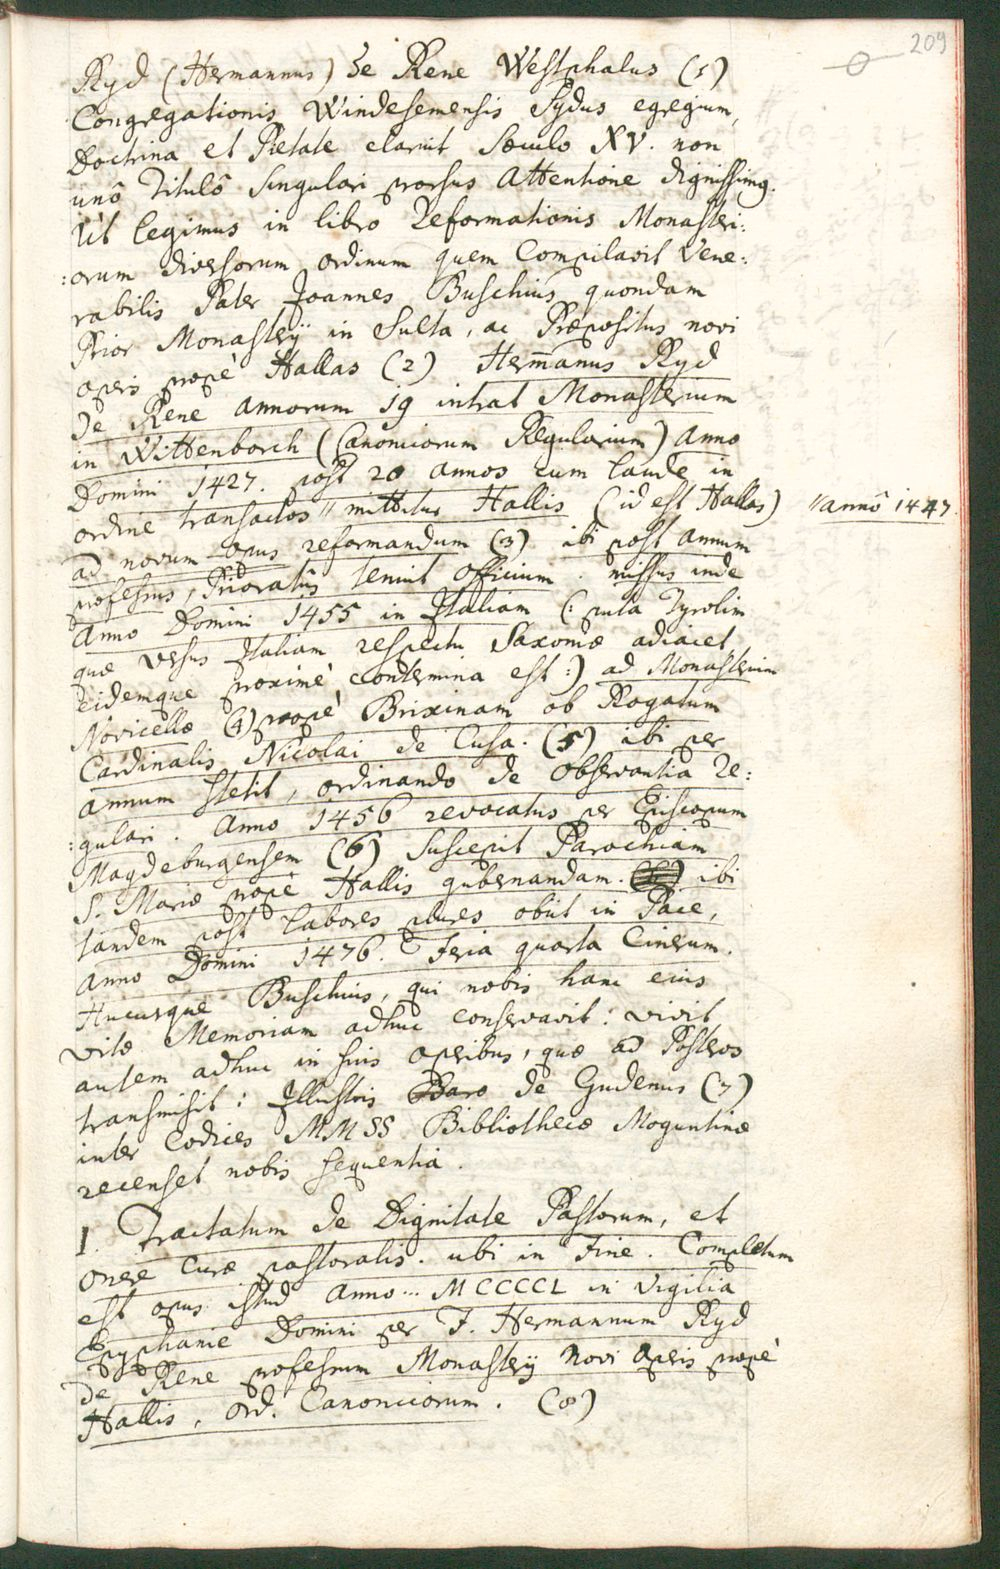 209
Ryd (Hermannus) de Rene Westphalus (1)
Congregationis Windesemensis Sydus egregium,
Doctrina et Pietate claruit Sæculo XV. non
unô Titulô Singulari prorsus Attentione dignissimg.
Ut legimus in libro Reformationis Monasteri:
:orum diversorum ordinum quem Compilavit Vene:
rabilis Pater Joannes Buschius quondam
Prior Monasterÿ in Sulta, ac Præpositus novi
operis propè Hallas (2) Hermanus Ryd
de Rene annorum 19 intrat Monasterium
in Wittenborch (Canonicorum Regularium) Anno
Domini 1427. post 20 annos cum laude in
ordine transactos // mittitur Hallis (id est Hallas) // annô 1447.
ad novum opus reformandum (3) ibi post annum
professus, Prioratûs tenuit officium. missus inde
Anno Domini 1455 in Italiam (: puta Tyrolim
quæ versus Italiam respectu Saxoniæ adiacet
eidemque proximè contermina est :) ad Monasterium
Novicellæ (4) propè Brixinam ob Rogatum
Cardinalis Nicolai de Cusa. (5) ibi per
annum stetit, ordinando de observantia Re:
:gulari. Anno 1456 revocatus per Episcopum
Magdeburgensem (6) suscepit Parochiam
S. Mariæ propè Hallis gubernandam. ibi
tandem post labores plures obiit in Pace,
Anno Domini 1476. Feria quarta Cinerum.
Hucusque Buschius, qui nobis hanc eius
vitæ Memoriam adhuc conservavit: vivit
autem adhuc in suis operibus, quæ ad Posteros
transmisit: Illustris Baro de Gudenus (7)
inter Codices MMSS Bibliothecæ Moguntinæ
recenset nobis sequentia.
1. Tractatum de Dignitate Pastorum, et
onere curæ pastoralis. ubi in Fine. Completum
est opus istud Anno ... MCCCCL in Vigilia
Epyphanie Domini per F. Hermannum Ryd
de Rene professum Monasterÿ Novi Operis propè
Hallis, ord. Canonicorum. (8)